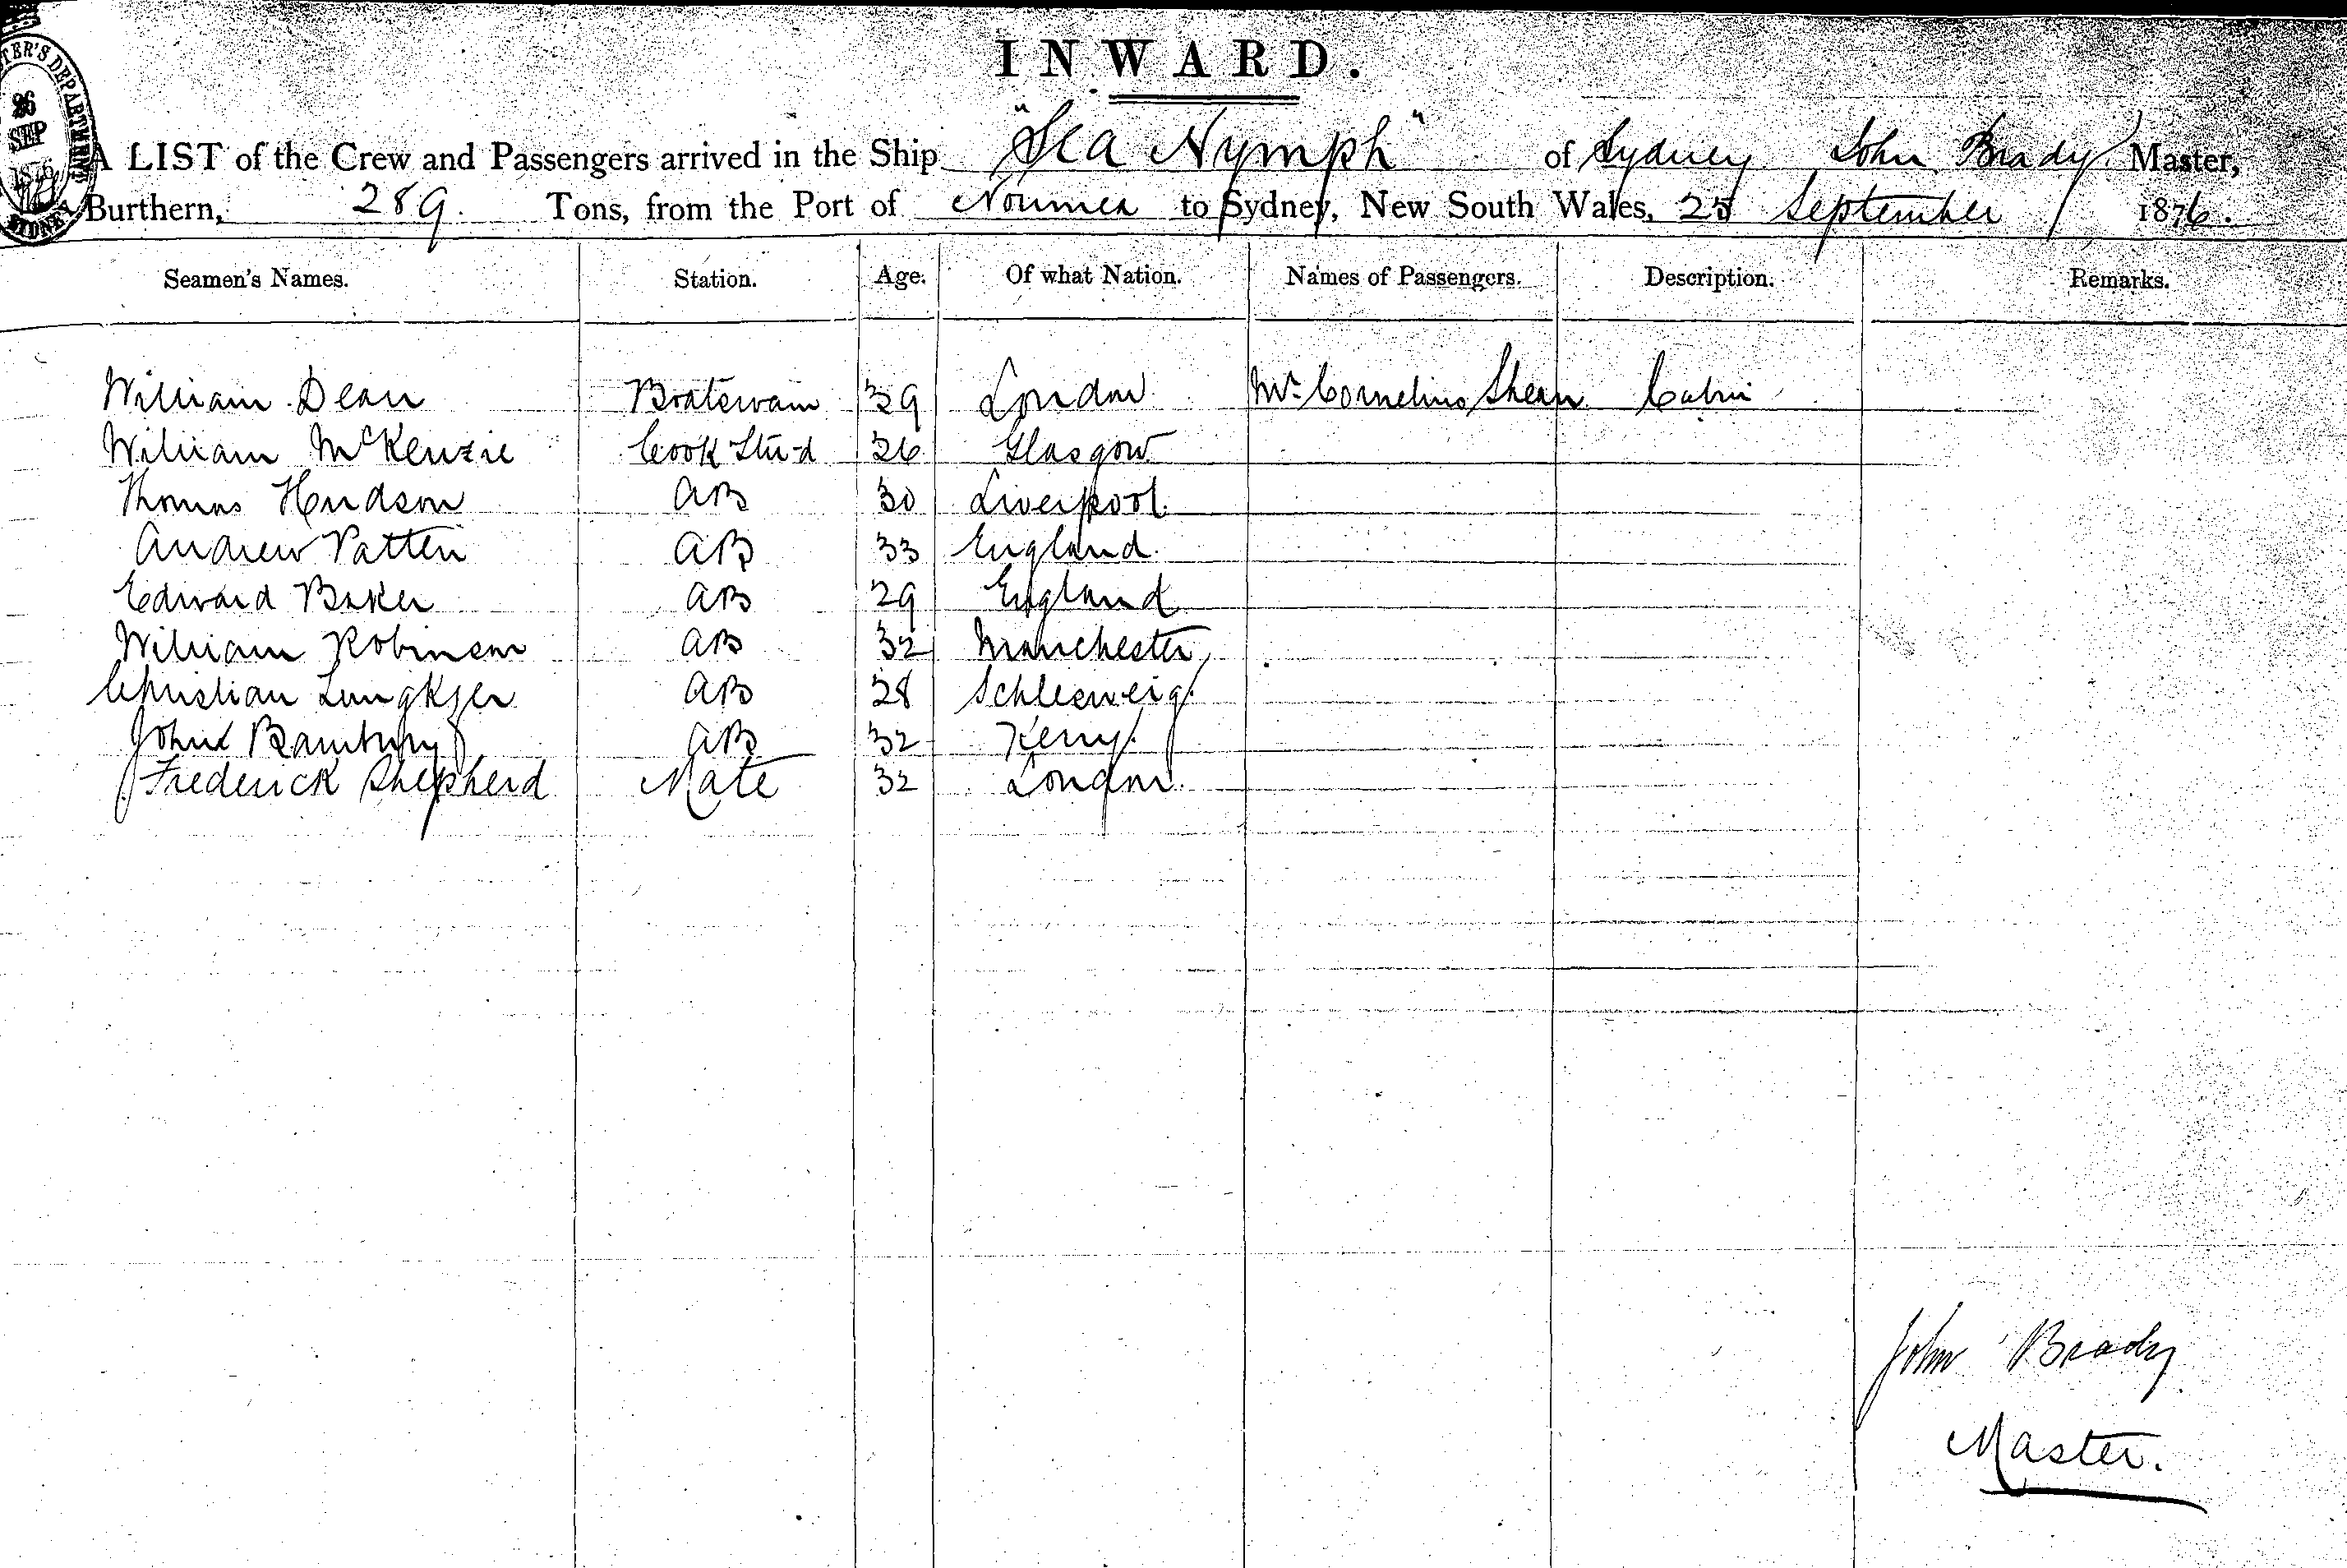 INWARD.
TER'S DEPARTMENT
26
SEP
1876
SYDNEY
A LIST of the Crew and Passengers arrived in the Ship "Sea Nymph" of Sydney John Brady Master,
Burthern, 289. Tons, from the Port of Noumea to Sydney, New South Wales, 25 September 1876.
Seamen's Names. Station. Age. Of what Nation. Names of Passengers. Description. Remarks.
William Dean Boatswain 39 London Mr. Cornelius Shean Cabin
William McKenzie Cook Stu-d 26 Glasgow
Thomas Hudson AB 30 Liverpool.
Andrew Patten AB 33 England.
Edward Baker AB 29 England
William Robinson AB 32 Manchester
Christian AB 28 Schlesweig.
John Bambury AB 32 Kerry.
Frederick Shepherd Mate 32 London.
John Brady
Master.